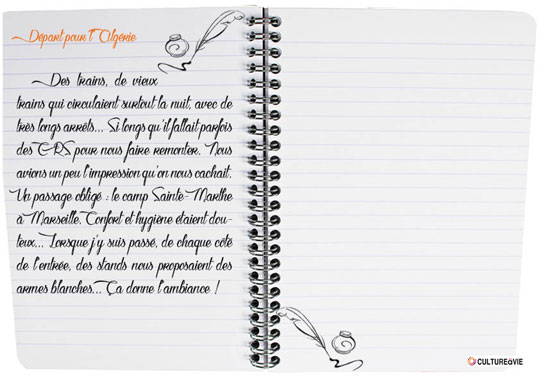 Départ pour l'Algérie
Des trains, de vieux
trains qui circulaient surtout la nuit, avec de
très longs arrêts... Si longs qu'il fallait parfois
des CRS pour nous faire remonter. Nous
avions un peu l'impression qu'on nous cachait.
Un passage obligé : le camp Sainte-Marthe
à Marseille. Confort et hygiène étaient dou-
teux... Lorsque j'y suis passé, de chaque côté
de l'entrée, des stands nous proposaient des
armes blanches... Ça donne l'ambiance !
CULTURE&VIE